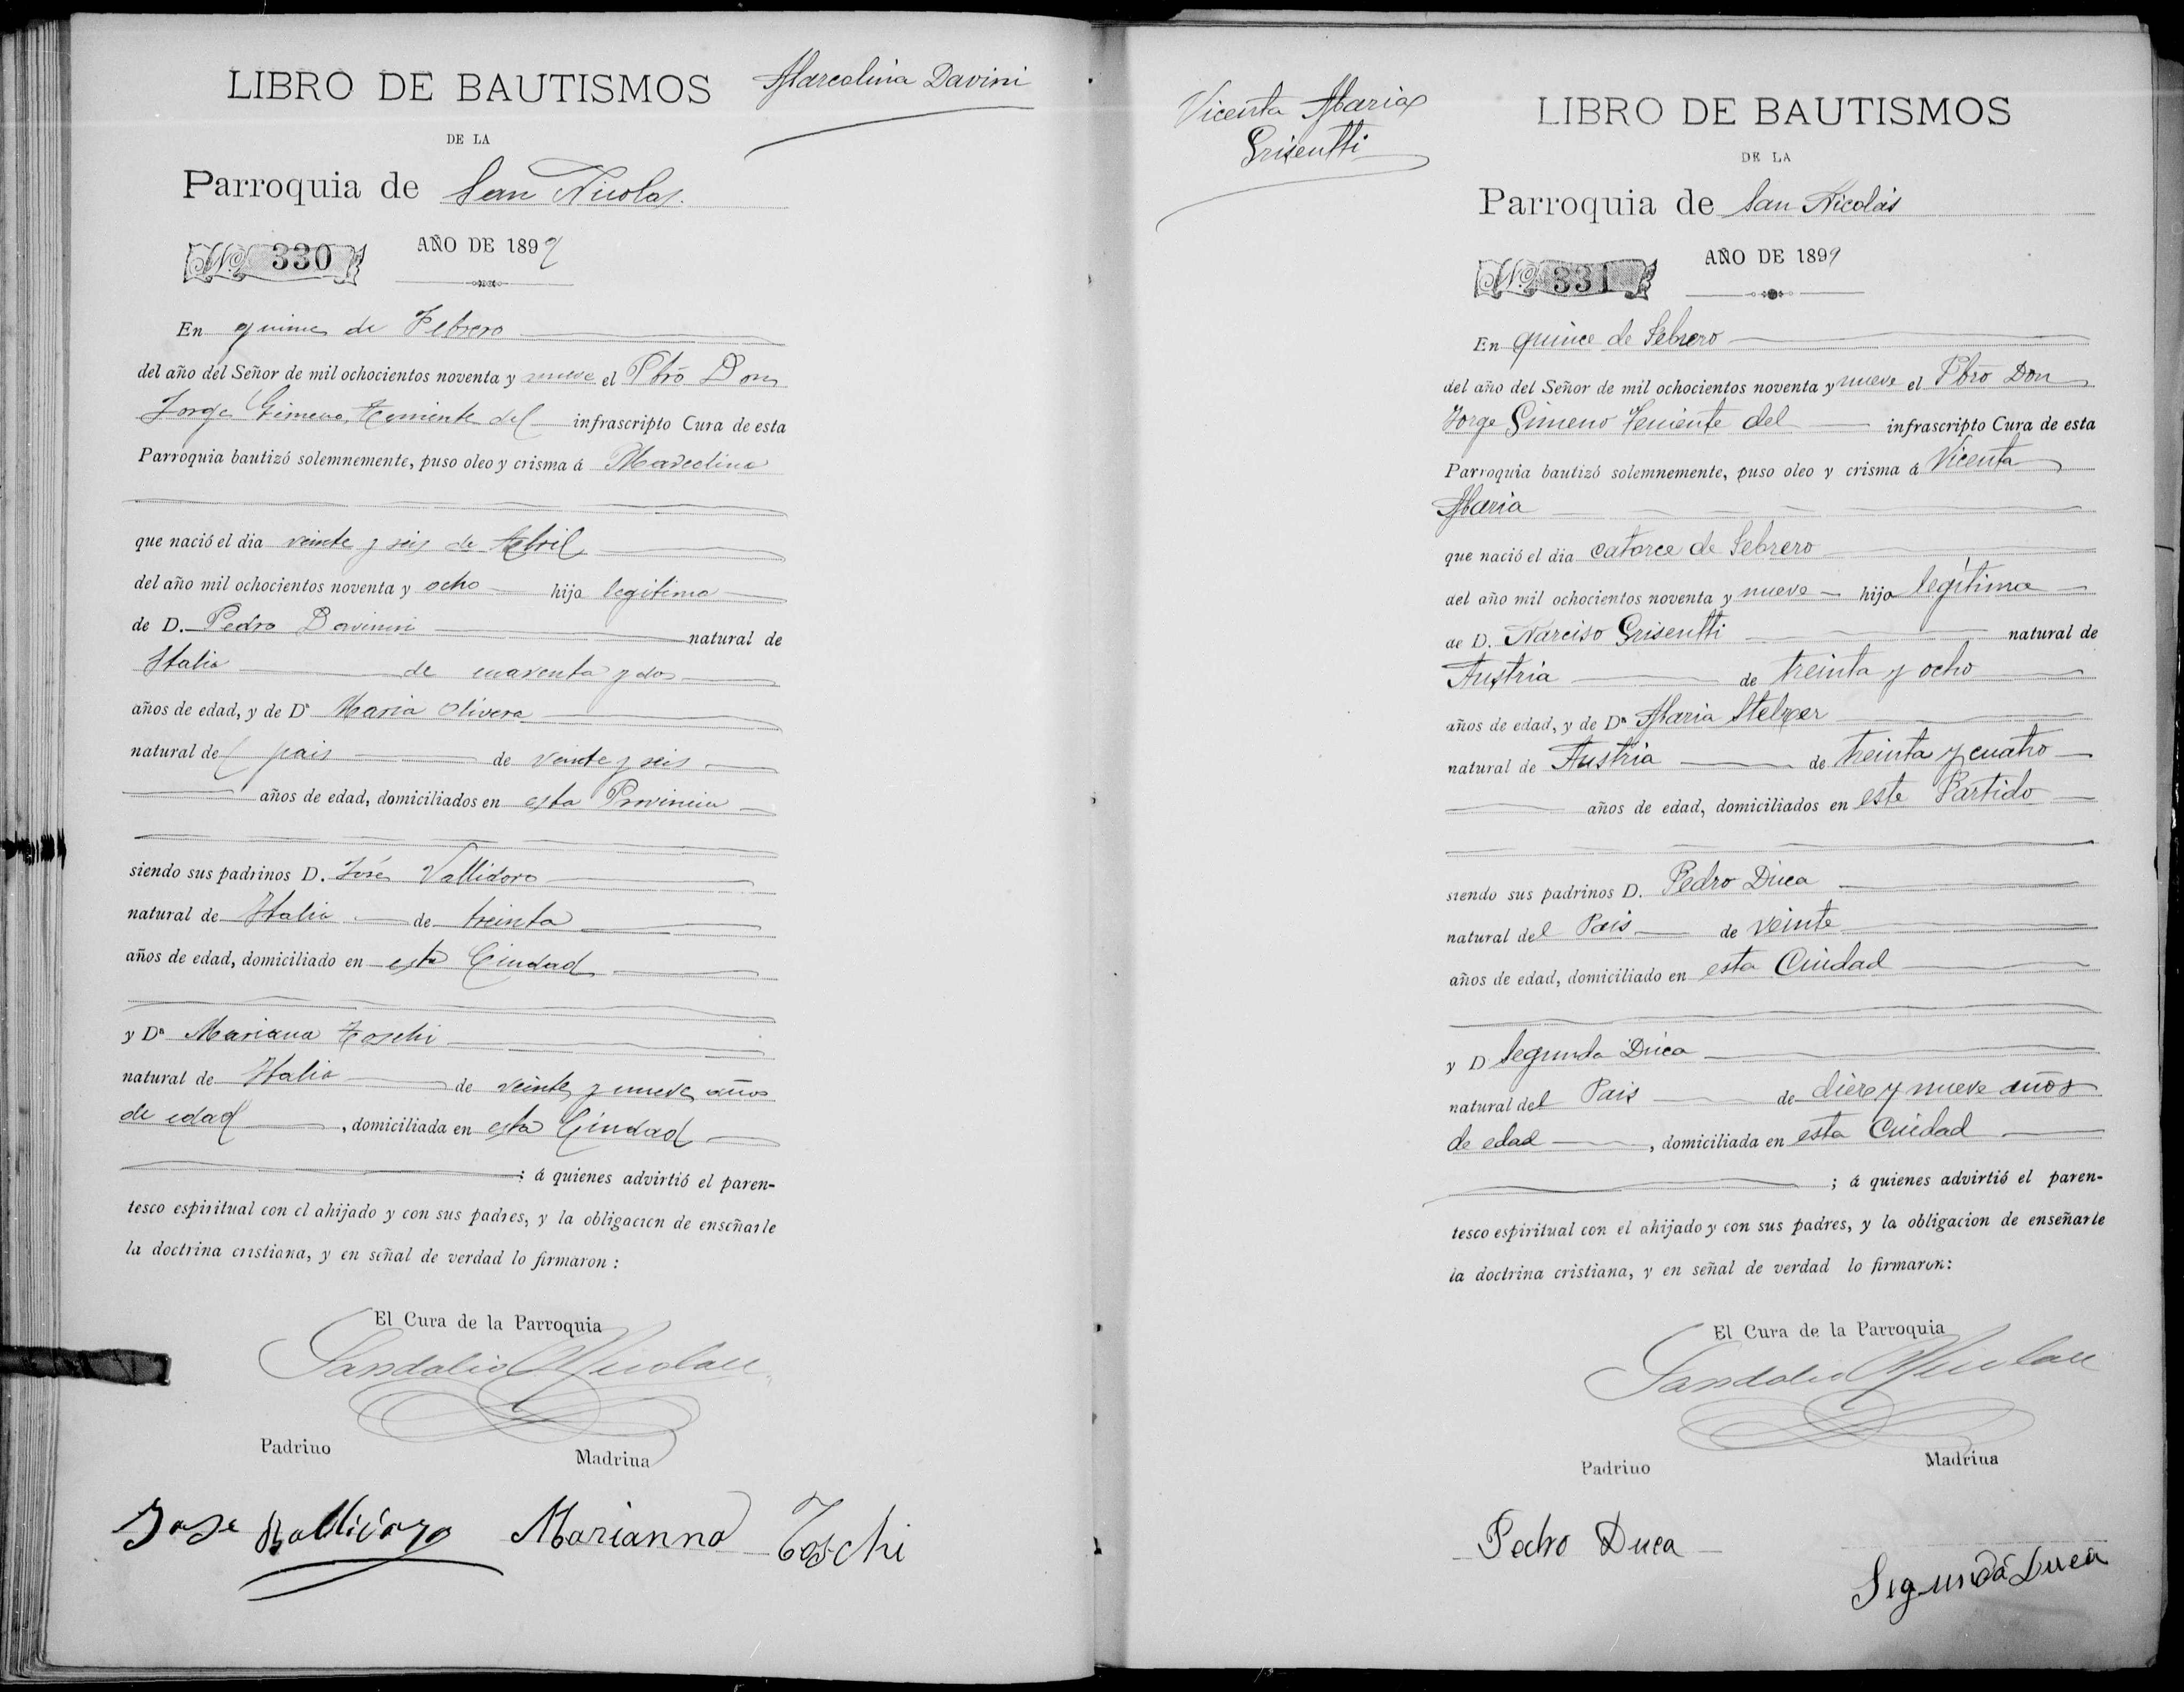 Marcolina Davini
LIBRO DE BAUTISMOS
DE LA
Parroquia de San Nicolas
No. 330
AÑO DE 1899
En quince de Febrero
del año del Señor de mil ochocientos noventa y nueve el Pbro Don
Jorge Gimeno, teniente del infrascripto Cura de esta
Parroquia bautizó solemnemente, puso oleo y crisma á Marcolina
que nació el dia veinte y seis de Abril
del año mil ochocientos noventa y ocho hija legitima
de D. Pedro Davinni natural de
Italia de cuarenta y dos
años de edad, y de Da Maria Olivera
natural del pais de veinte y seis
años de edad, domiciliados en esta Provincia
siendo sus padrinos D. José Vallidoro
natural de Italia de treinta
años de edad, domiciliado en esta Ciudad
y Da Mariana Toschi
natural de Italia de veinte y nueve años
de edad, domiciliada en esta Ciudad
: á quienes advirtió el paren-
tesco espiritual con el ahijado y con sus padres, y la obligacion de enseñarle
la doctrina cristiana, y en señal de verdad lo firmaron :
El Cura de la Parroquia
Sandalio Nicolau
Padrino
Madrina
Jose Marianna Toschi
Vicenta Maria
Grisentti
LIBRO DE BAUTISMOS
DE LA
Parroquia de San Nicolás
No. 331
AÑO DE 1899
En quince de Febrero
del año del Señor de mil ochocientos noventa y nueve el Pbro Don
Jorge Gimeno Teniente del infrascripto Cura de esta
Parroquia bautizó solemnemente, puso oleo y crisma á Vicenta
Maria
que nació el dia catorce de Febrero
del año mil ochocientos noventa y nueve hija legítima
de D. Narciso Grisentti natural de
Austria de treinta y ocho
años de edad, y de Da Maria Stelzer
natural de Austria de treinta y cuatro
años de edad, domiciliados en este Partido
siendo sus padrinos D. Pedro Duca
natural del Pais de veinte
años de edad, domiciliado en esta Ciudad
y D Segunda Duca
natural del Pais de diez y nueve años
de edad, domiciliada en esta Ciudad
; á quienes advirtió el paren-
tesco espiritual con el ahijado y con sus padres, y la obligacion de enseñarle
la doctrina cristiana, y en señal de verdad lo firmaron:
El Cura de la Parroquia
Sandalio Nicolau
Padrino
Madrina
Pedro Duca
Segunda Duca